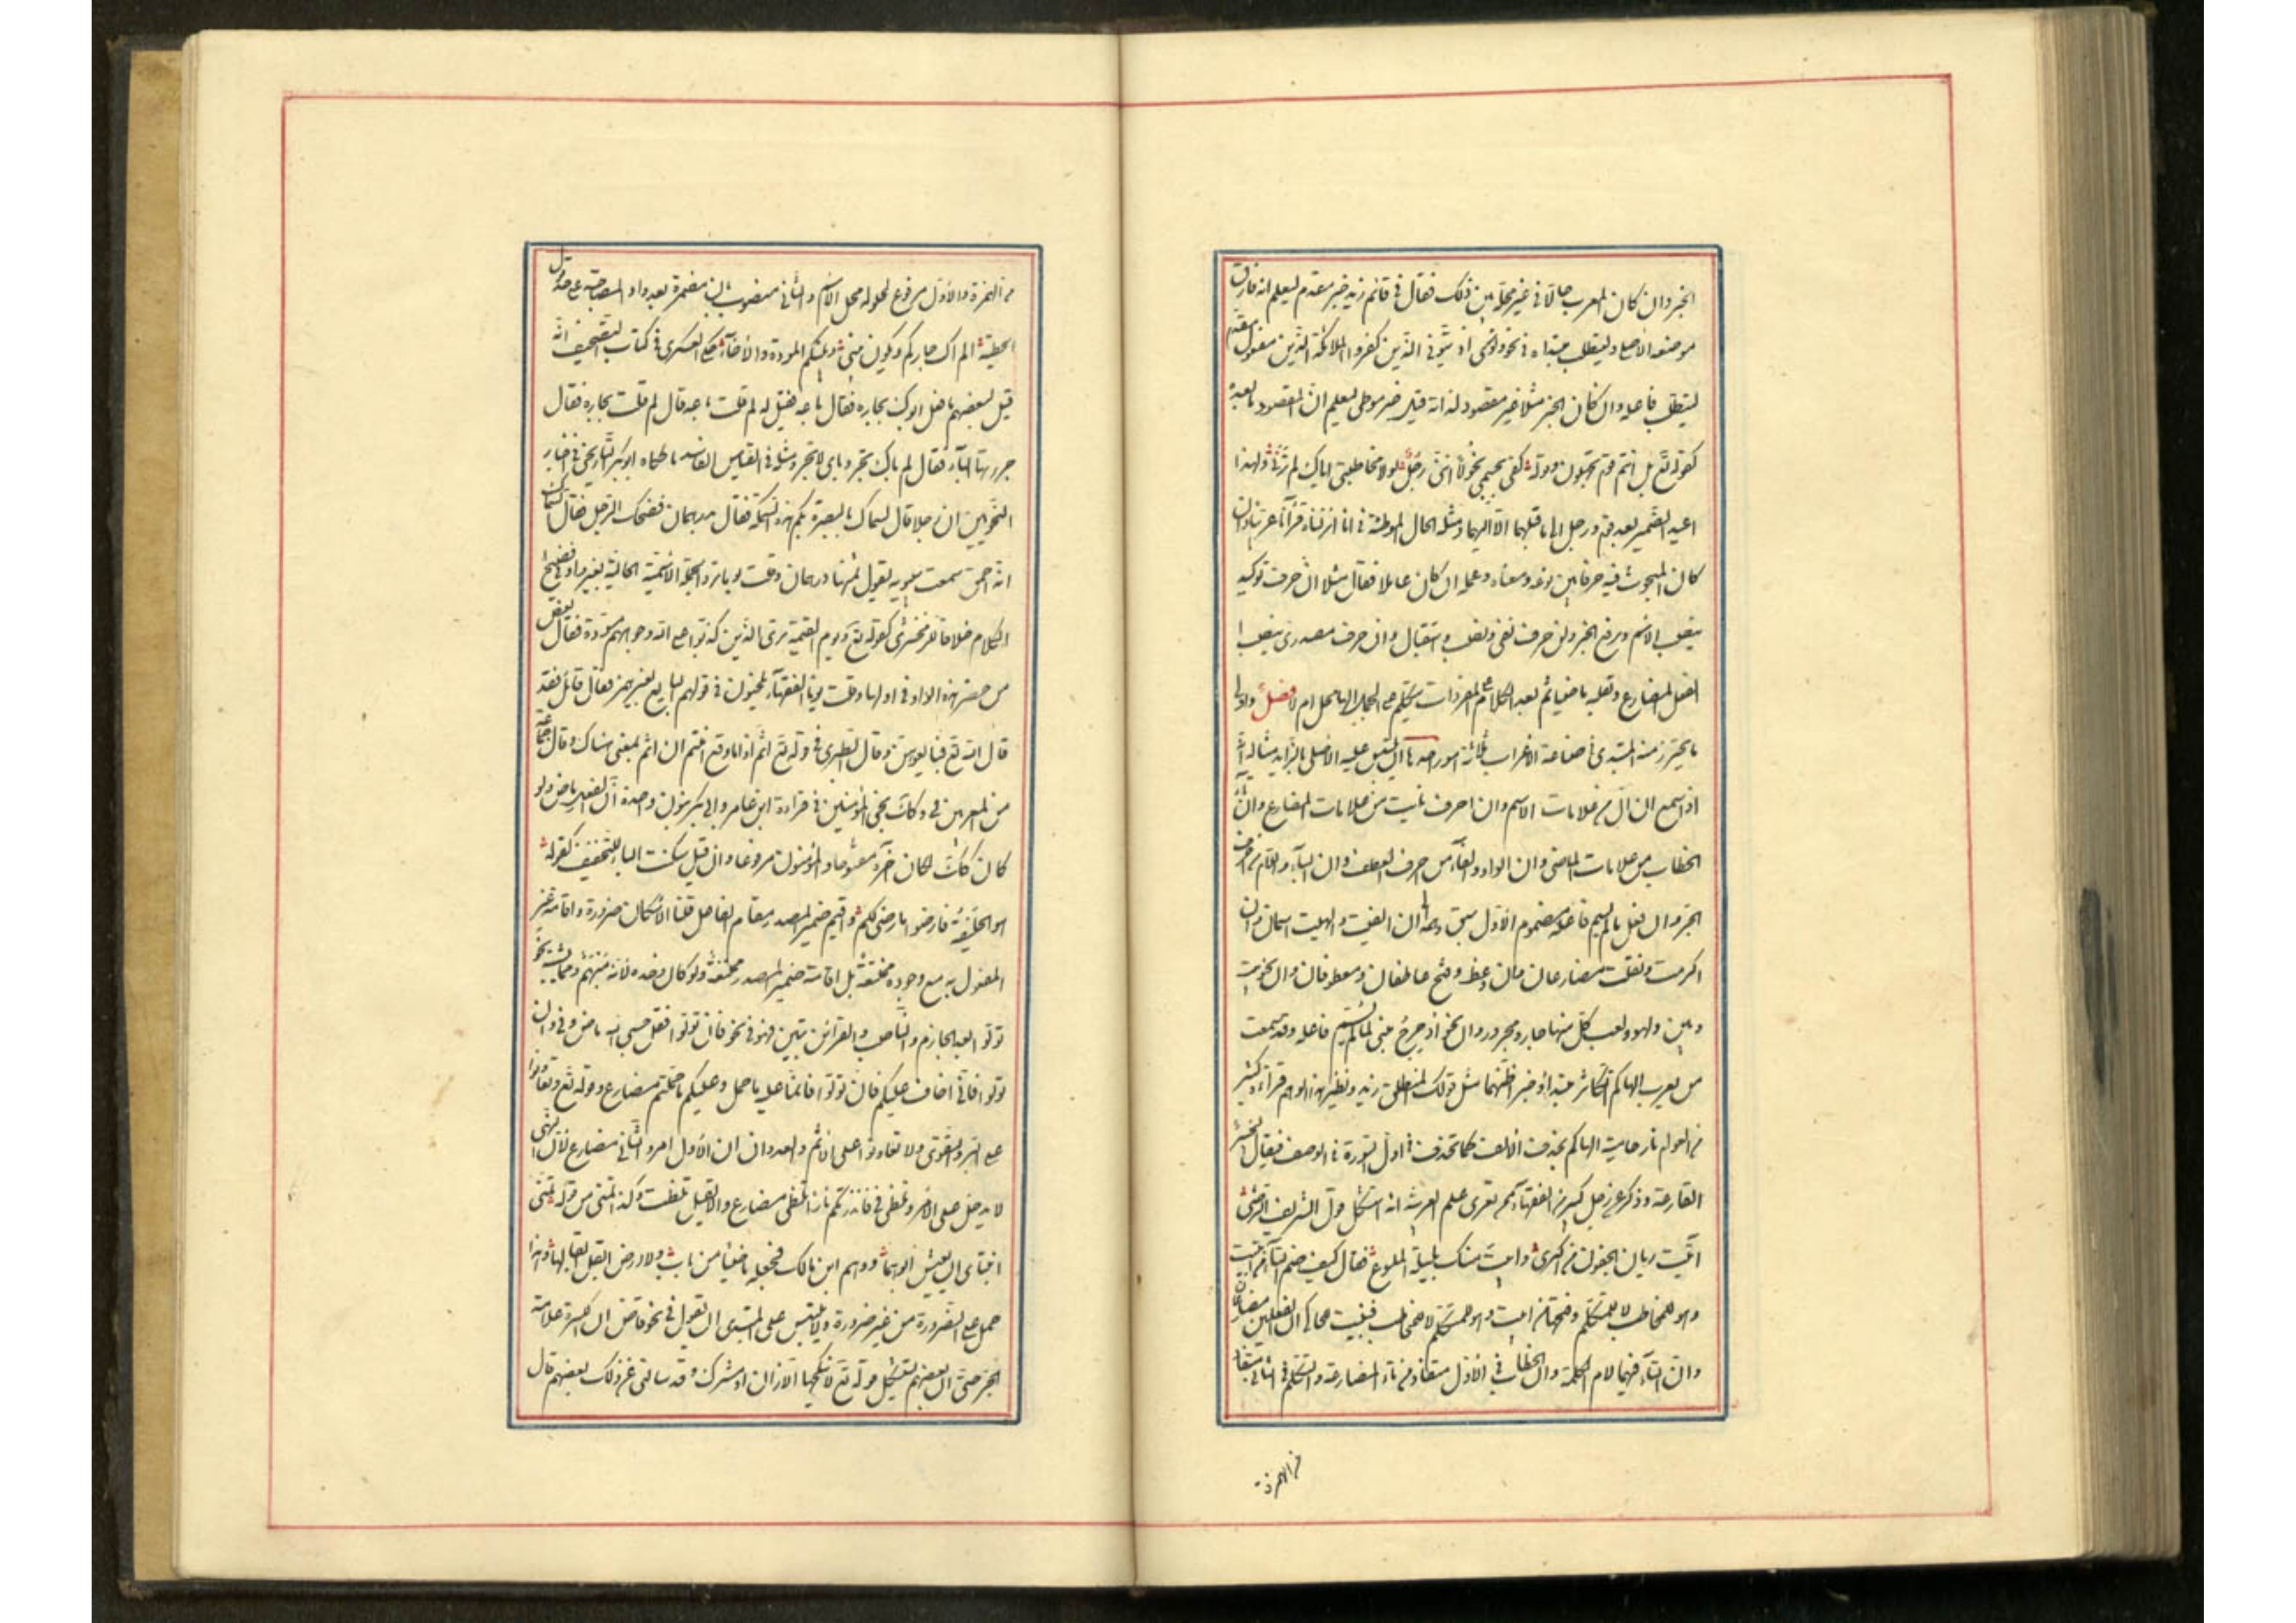 الخبر وان كان المعرب حالا في غير محله بين ذلك فقال في قائم زيد خبر مقدم ليعلم انه فارق
موضعه الاصلي وليتطلب مبتداه في نحو ولو ترى اذ يتوفى الذين كفروا الملائكة الذين مفعول مقدم
ليتطلب فاعله وان كان الخبر مثلا غير مقصود لذاته قيل خبر موطئ ليعلم ان المقصود ما بعده
كقوله تع بل انتم قوم تجهلون وقوله كفى بجسمى نحولا اننى رجل لولا مخاطبتى اياك لم ترنى ولهذا
اعيد الضمير بعد قوم ورجل الى ما قبلهما لا اليهما ومثله الحال الموطئة في انا انزلناه قرآنا عربيا وان
كان المبحوث فيه حرفا بين نوعه ومعناه وعمله ان كان عاملا فقال مثلا ان حرف توكيد
ينصب الاسم ويرفع الخبر ولن حرف نفى ونصب واستقبال وان حرف مصدرى ينصب
الفعل المضارع ثم بعد الكلام على المفردات يتكلم على الجمل الها محل ام لا فصل واول
ما يحترز منه المبتدى في صناعة الاعراب ثلاثة امور احدها ان يلتبس عليه الاصلى بالزايد مثاله انه
اذا سمع ان ال من علامات الاسم وان احرف نايت من علامات المضارع وان تاء
الخطاب من علامات الماضى وان الواو والفاء من احرف العطف وان الباء واللام من احرف
الجر وان فعل ما لم يسم فاعله مضموم الاول سبق وهمه الى ان الفيت والهيت اسمان وان
اكرمت وتعلمت مضارعان وان وعظ وفسخ عاطفان ومعطوفان وان نحو بيت
وبين ولهو ولعب كل منها جار ومجرور وان نحو ادحرج مبنى لما لم يسم فاعله وقد سمعت
من يعرب الهاكم التكاثر مبتدا وخبرا ظنهما مثل قولك المنطلق زيد ونظير هذا الوهم قراءة كثير
من العوام نار حامية الهاكم بحذف الالف كما تحذف في اول السورة في الوصف فيقال لخبير
القارعة وذكر عن رجل كبير من الفقهاء ممن يقرى علم العربية انه استشكل قول الشريف المرتضى
اتبيت ريان الجفون من الكرى وابيت منك بليلة الملسوع فقال كيف ضم التاء من تبيت
وهو للمخاطب لا للمتكلم وفتحها من ابيت وهو للمتكلم لا للمخاطب فبينت للحاكى ان الفعلين مضارعان
وان التاء فيهما لام الكلمة وان الخطاب في الاول مستفاد من تاء المضارعة والتكلم في الثانى مستفاد
من الهمزة
من الهمزة والاول مرفوع لحلوله محل الاسم والثانى منصوب بان مضمرة بعد واو المصاحبة على حد قول
الحطيئة الم اك جاركم ويكون بينى وبينكم المودة والاخاء وحكى العسكرى في كتاب التصحيف انه
قيل لبعضهم ما فعل ابوك بحماره فقال باعه فقيل له لم قلت باعه قال لم قلت بحماره فقال
جررته بالباء فقال لم باؤك تجر وبائى لا تجر ومثله في القياس الفاسد ما حكاه ابو بكر التاريخى في اخبار
النحويين ان رجلا قال لسماك بالبصرة بكم هذه السمكة فقال بدرهمان فضحك الرجل فقال السماك
انت احمق سمعت سيبويه يقول ثمنها درهمان وقلت يوما ترد الجملة الاسمية الحالية بغير واو في فصيح
الكلام خلافا للزمخشرى كقوله تع ويوم القيمة ترى الذين كذبوا على الله وجوههم مسودة فقال بعض
من حضر هذه الواو في اولها وقلت يوما الفقهاء يلحنون في قولهم البايع بغير همز فقال قائل فقد
قال الله تع فبايعهن وقال الطبرى في قوله تع اثم اذا ما وقع امنتم ان اثم بمعنى هناك وقال جماعة
من المعربين في وكذلك نجى المؤمنين في قراءة ابن عامر وابى بكر بنون واحدة ان الفعل ماض ولو
كان كذلك لكان اخره مفتوحا والمؤمنون مرفوعا وان قيل سكنت الياء للتخفيف كقوله
هو الخليفة فارضوا ما رضى لكم واقيم ضمير المصدر مقام الفاعل قلنا الاسكان ضرورة واقامة غير
المفعول به مع وجوده ممتنعة بل اقامة ضمير المصدر ممتنعة ولو كان وحده لانه مبهم ومما يشتبه نحو
تولوا بعد الجازم والناصب والقرائن تبين فهو في نحو فان تولوا فقل حسبى الله ماض وفي وان
تولوا فانى اخاف عليكم فان تولوا فانما عليه ما حمل وعليكم ما حملتم مضارع وقوله تع وتعاونوا
على البر والتقوى ولا تعاونوا على الاثم والعدوان ان الاول امر والثانى مضارع لان النهى
لا يدخل على الامر وتلظى في فانذرتكم نارا تلظى مضارع والا لقيل تلظت وكذا تمنى من قوله تمنى
ابنتاى ان يعيش ابوهما ووهم ابن مالك فجعله ماضيا من باب ولا ارض ابقل ابقالها وهذا
حمل على الضرورة من غير ضرورة ومما يلتبس على المبتدى ان تقول في نحو قاض ان الكسرة علامة
الجر حتى ان بعضهم يستشكل قوله تع لا ينكحها الا زان او مشرك وقد سالنى عن ذلك بعضهم قال